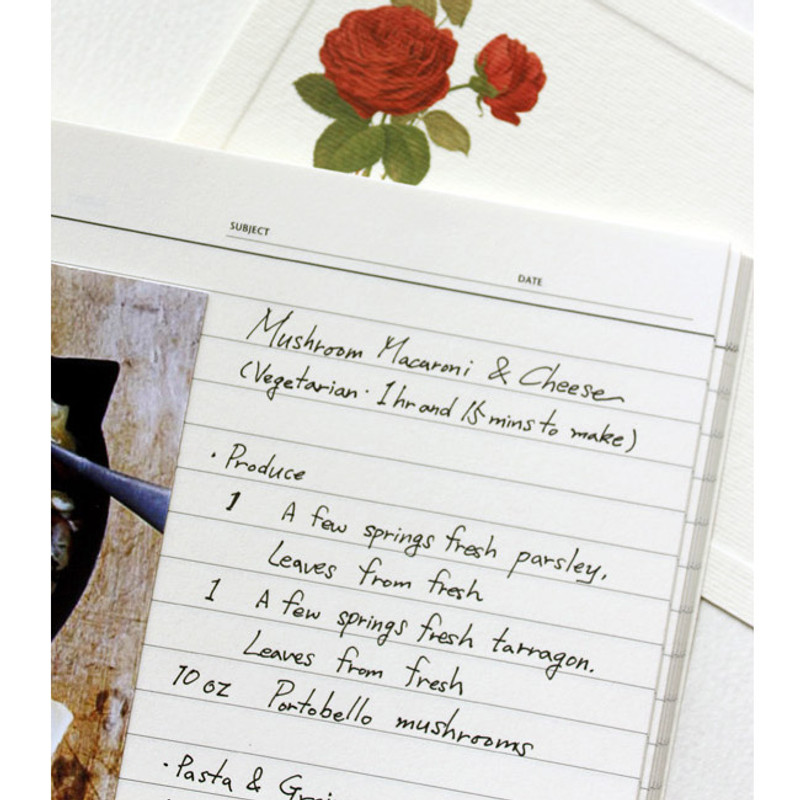 SUBJECT
DATE
Mushroom Macaroni & Cheese
(Vegetarian · 1 hr and 15 mins to make)
· Produce
1 A few springs fresh parsley,
Leaves from fresh
1 A few springs fresh tarragon.
Leaves from fresh
10 oz Portobello mushrooms
· Pasta &